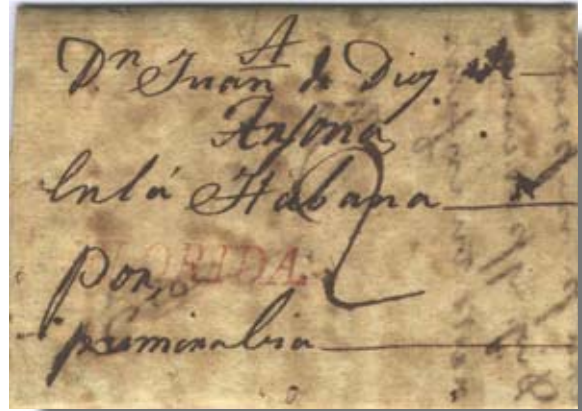 A
Dn Juan de Dioz de
Ansona
En la Habana
2
FLORIDA
por,
primera bia